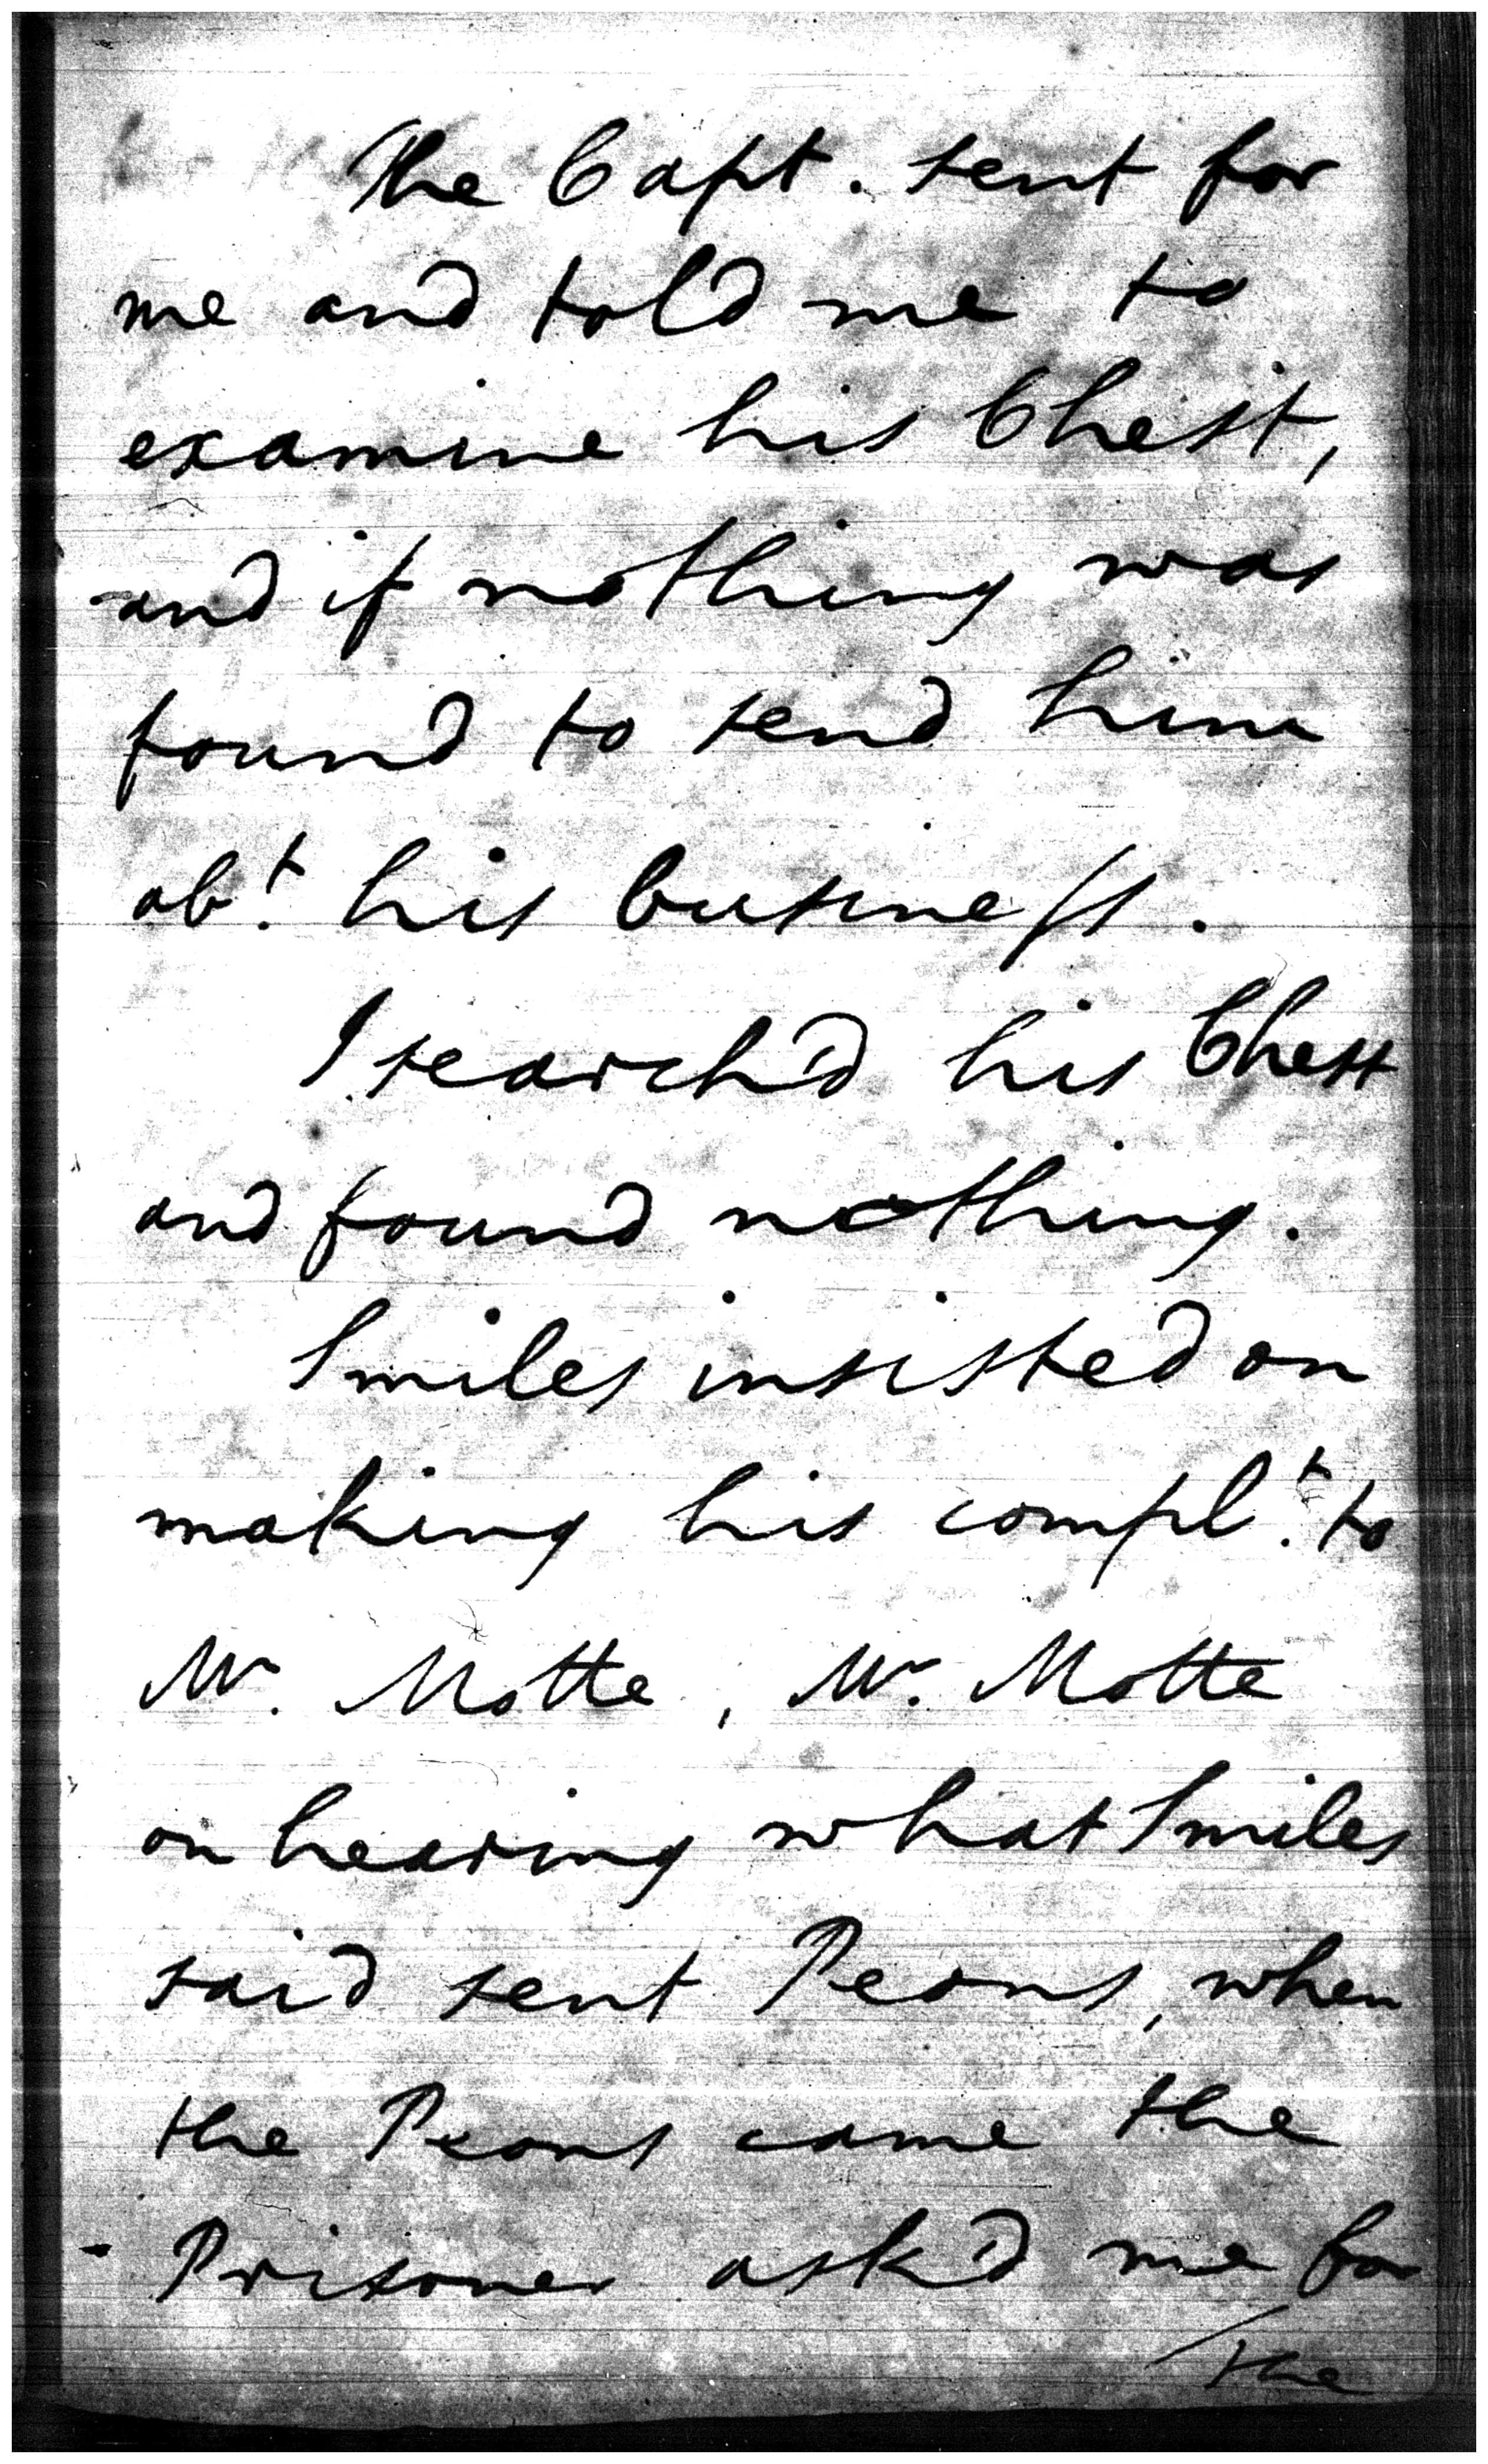 The Capt. sent for
me and told me to
examine his Chest,
and if nothing was
found to send him
abt. his business.
I search'd his Chest
and found nothing.
Smiles insisted on
making his complt. to
Mr. Motte, Mr. Motte
on hearing what Smiles
said sent Peons, when
the Peons came the
Prisoner ask'd me for
the